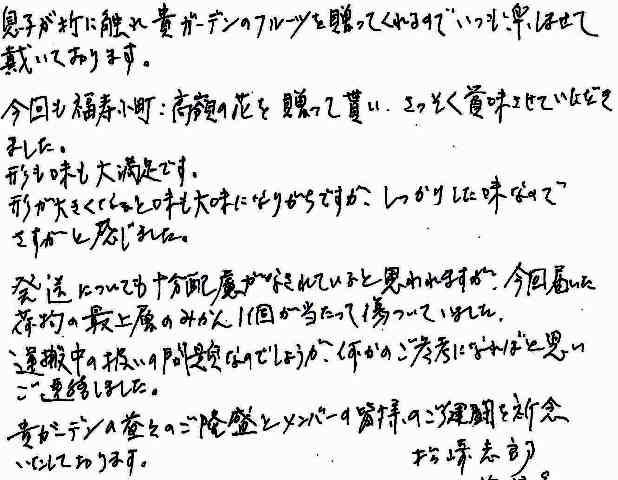 息子が折に触れ貴ガーデンのフルーツを贈ってくれるのでいつも楽しませて
戴いております。
今回も福寿小町:高嶺の花を贈って貰い、さっそく賞味させていただき
ました。
形も味も大満足です。
形が大きくなると味も大味になりがちですが、しっかりした味なので
さすがと感じました。
発送についても十分配慮がなされていると思われますが、今回届いた
荷物の最上層のみかん11個が当たって傷ついていました。
運搬中の扱いの問題なのでしょうが、何かのご参考になればと思い
ご連絡しました。
貴ガーデンの益々のご隆盛とメンバーの皆様のご健闘を祈念
いたしております。
松崎志郎